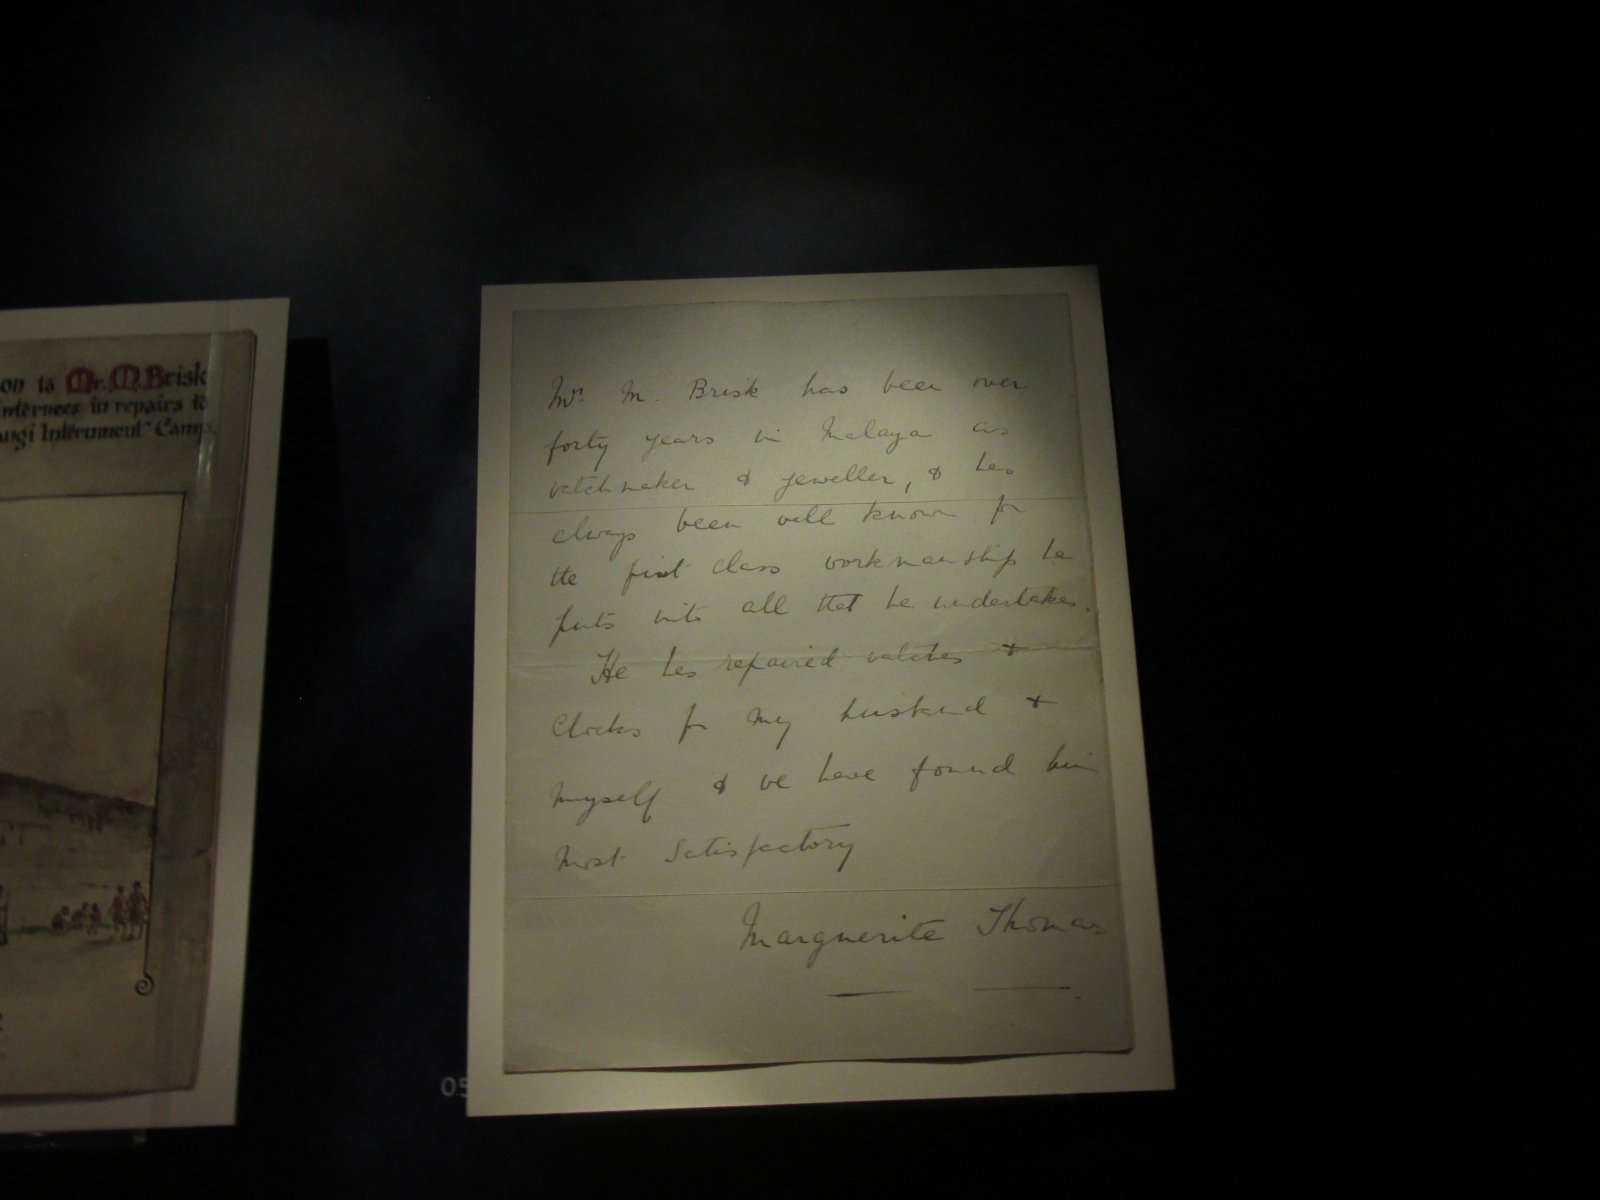 on to Mr. M. Brisk
internees in repairs to
angi Internment Camp.
Mr. M. Brisk has been over
forty years in Malaya as
watchmaker & jeweller, & has
always been well known for
the first class workmanship he
puts into all that he undertakes.
He has repaired watches &
Clocks for my husband &
myself & we have found him
most satisfactory
Marguerite Thomas
05